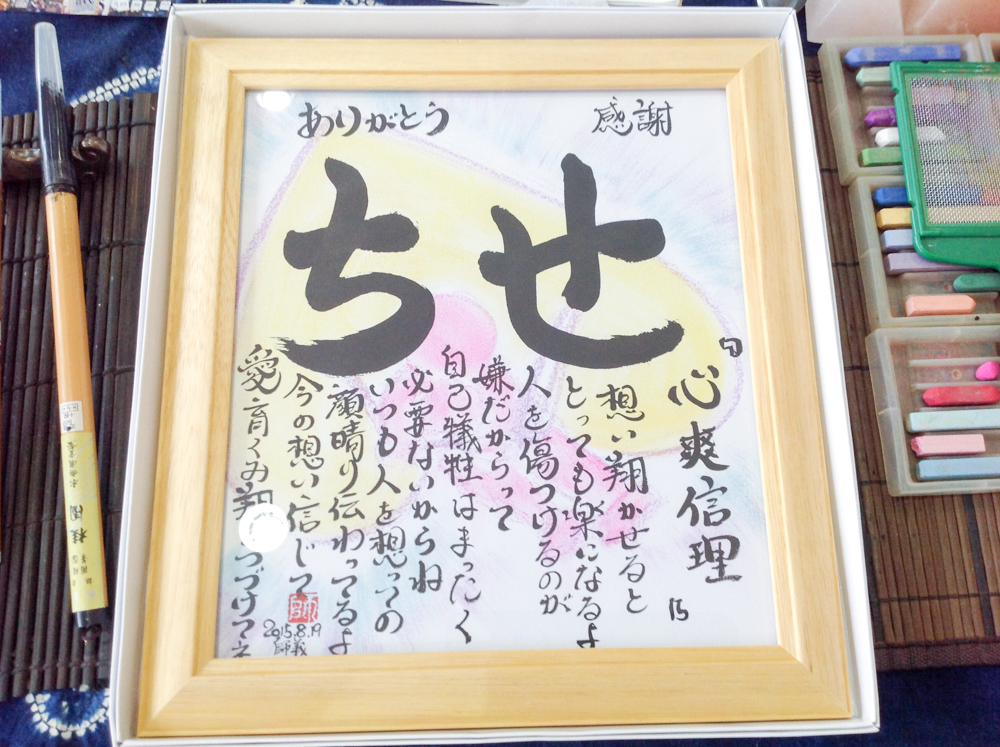 感謝
ありがとう
せち
心爽信理
想い翔かせると
とっても楽になるよ
人を傷つけるのが
嫌だからって
自己犠牲はまったく
必要ないからね
いつも人を想っての
顔晴り伝わってるよ
今の想い信じて
愛育くみ翔 つづけてネ
師
2015.8.19
師義
桂園